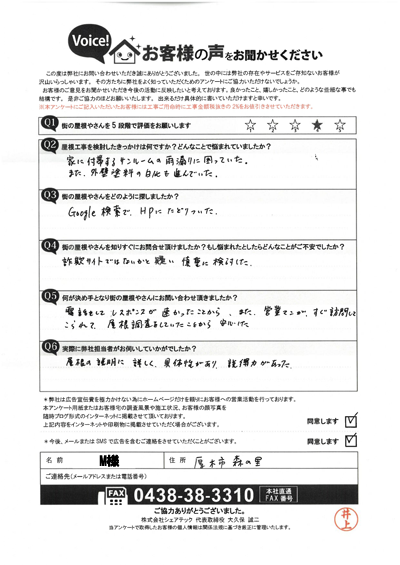 Voice!
お客様の声をお聞かせください
この度は弊社にお問い合わせいただき誠にありがとうございました。世の中には弊社の存在やサービスをご存知ないお客様が
沢山いらっしゃいます。その方たちに弊社をよく知っていただくためのアンケートにご協力いただけないでしょうか。
お客様のご意見をお聞かせいただき今後の活動に反映したいと考えております。良かったこと、嬉しかったこと、どのような些細な事でも
結構です。是非ご協力のほどお願いいたします。出来るだけ具体的に書いていただけますと幸いです。
※本アンケートにご記入いただいたお客様には工事ご用命時に工事金額税抜きの2%をお値引きさせていただきます。
Q1 街の屋根やさんを5段階で評価をお願いします ☆ ☆ ☆ ★ ☆
Q2 屋根工事を検討したきっかけは何ですか?どんなことで悩まれていましたか?
家に付帯するサンルームの雨漏りに困っていた。
また、外壁塗料の白化も進んでいた。
Q3 街の屋根やさんをどのように探しましたか?
Google 検索で、HPにたどりついた。
Q4 街の屋根やさんを知りすぐにお問合せ頂けましたか?もし悩まれたとしたらどんなことがご不安でしたか?
詐欺サイトではないかと疑い 慎重に検討した。
Q5 何が決め手となり街の屋根やさんにお問い合わせ頂きましたか?
電話をして レスポンスが速かったことから、また、営業マンが、すぐ訪問して
こられて、屋根調査をしていたことから
Q6 実際に弊社担当者がお伺いしていかがでしたか?
屋根の説明に 詳しく、具体性があり、説得力があった。
＊弊社は広告宣伝費を極力かけない為にホームページだけを頼りにお客様への営業活動を行っております。
本アンケート用紙またはお客様宅の調査風景や施工状況、お客様の顔写真を
随時ブログ形式のインターネットに掲載させて頂いております。
上記内容をインターネットや印刷物に掲載させていただく場合がございます。 同意します ☑
＊今後、メールまたは SMS で広告を含むご連絡をさせていただくことがございます。 同意します ☑
名 前 M様 住 所 厚木市 森の里
ご連絡先(メールアドレスまたは電話番号)
FAX 0438-38-3310 本社直通 FAX 番号
ご協力ありがとうございました。
株式会社シェアテック 代表取締役 大久保 誠二
当アンケートで取得したお客様の個人情報は関係法規に基づき厳正に管理いたします。
井上